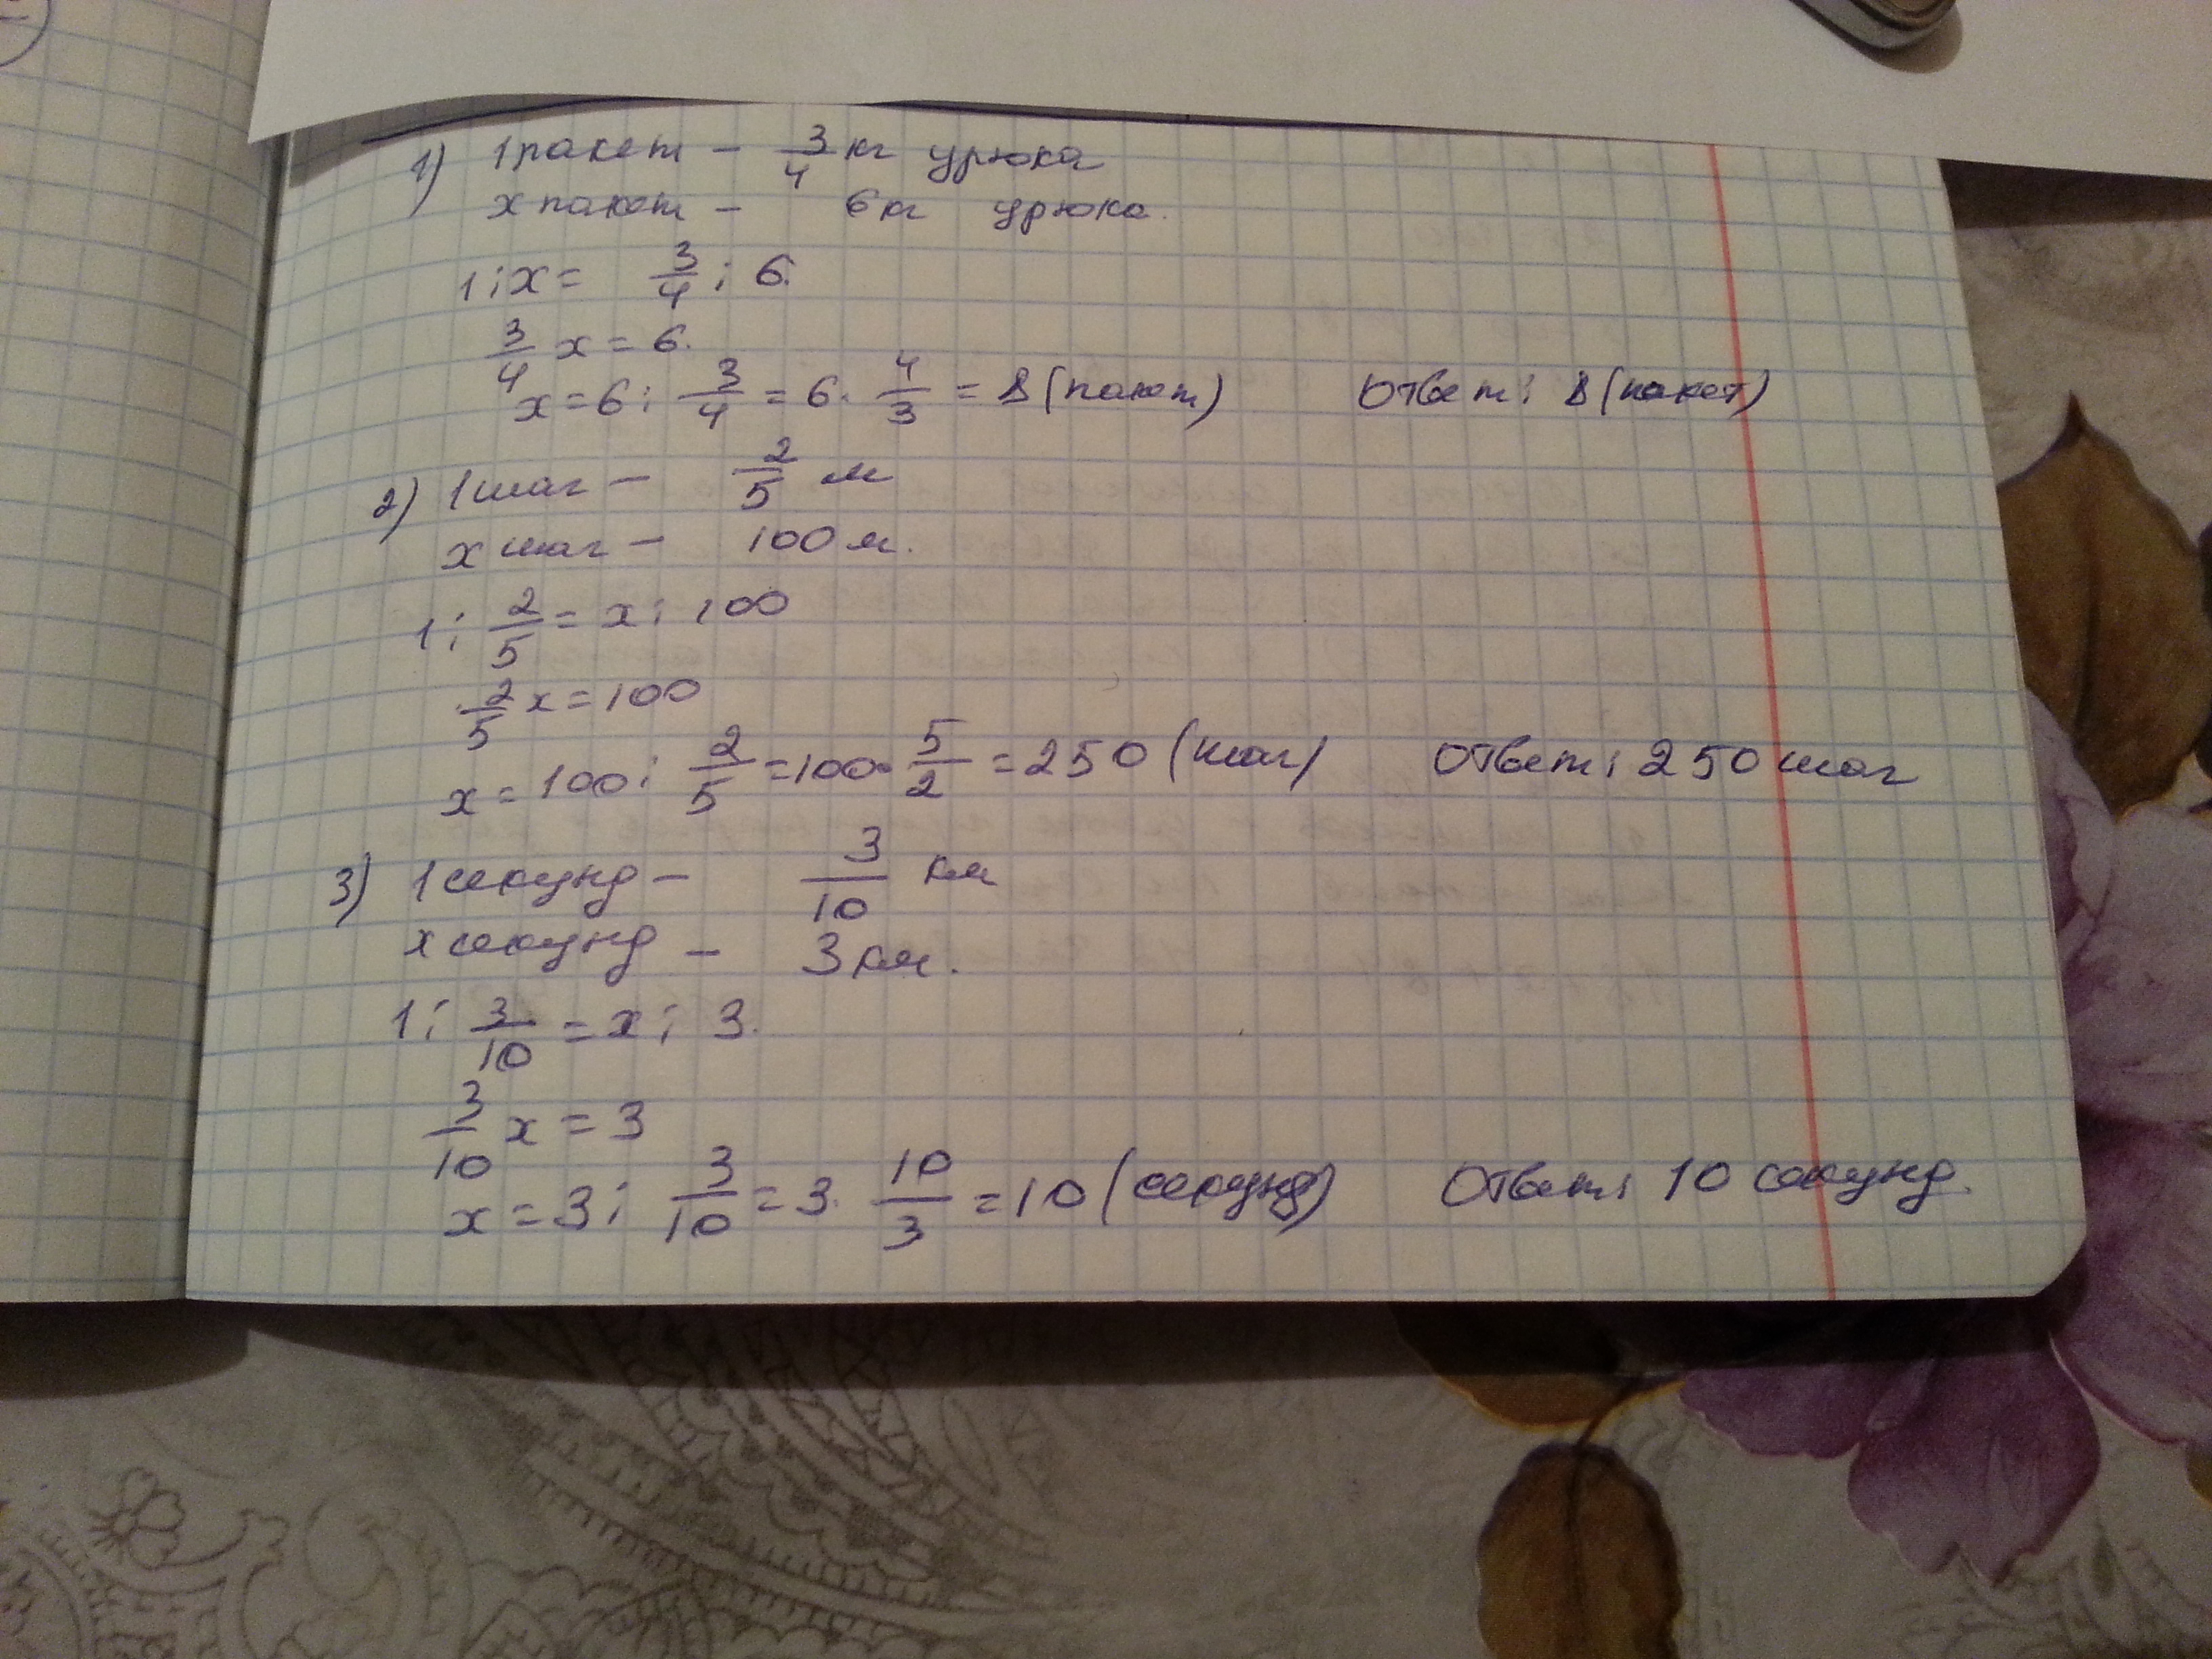 1) 1 пакет – 3/4 кг урюка
х пакет – 6 кг урюка.
1 : х = 3/4 : 6.
3/4 х = 6.
х = 6 : 3/4 = 6 · 4/3 = 8 (пакет) Ответ: 8 (пакет)
2) 1 шаг – 2/5 м
х шаг – 100 м.
1 : 2/5 = х : 100
2/5 х = 100
х = 100 : 2/5 = 100 · 5/2 = 250 (шаг) Ответ: 250 шаг
3) 1 секунд – 3/10 км
х секунд – 3 км.
1 : 3/10 = х : 3.
3/10 х = 3
х = 3 : 3/10 = 3 · 10/3 = 10 (секунд) Ответ: 10 секунд.